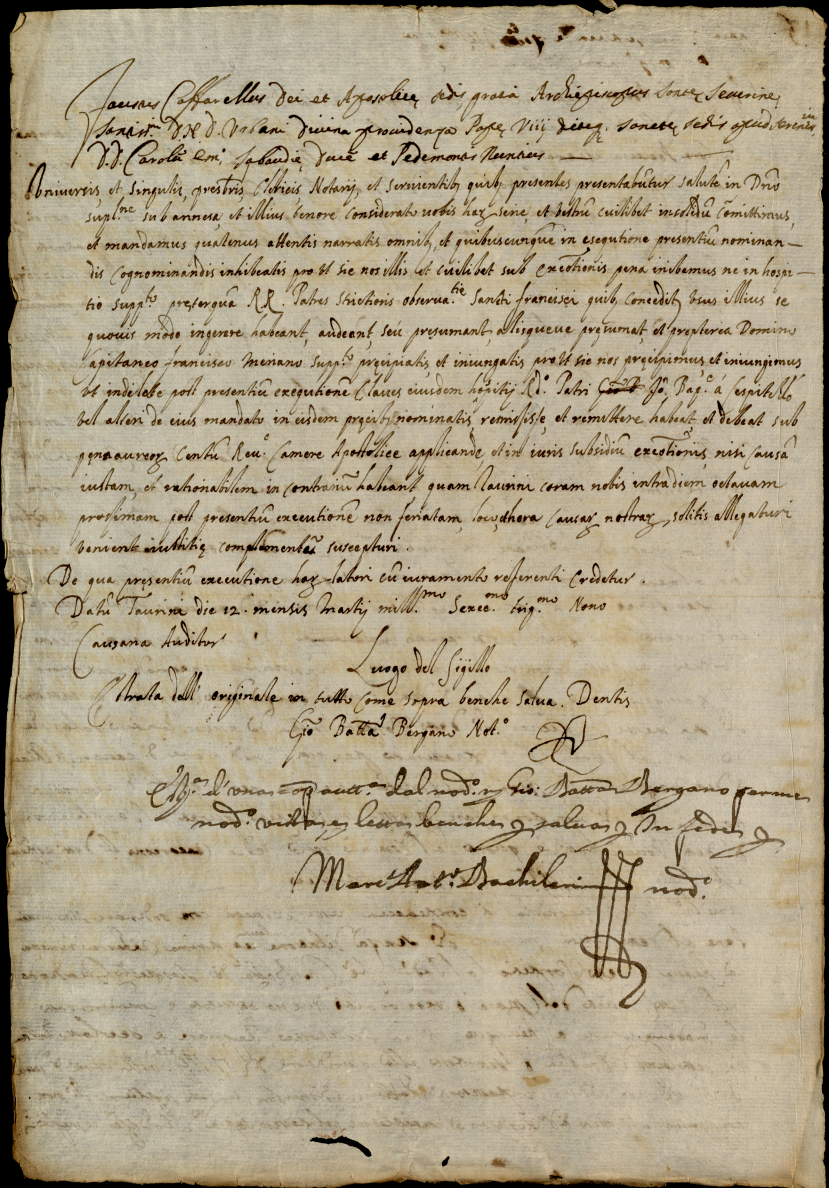 Fausus Caffarellus Dei et Apostolicę sedis gratia Archiepiscopus Sanctę Severinę,
Sanct.mi D. N. D. Urbani divina providentia Papę Viij eiusq. Sanctę sedis apud serenis.m
D. D. Carolũ Em. Sabaudię Ducẽ et Pedemontis Nuncius —
Universis et singulis, prestris Clericis Notarijs, et servientib, quib, presentes presentabũtur salutẽ in Dn̄o
supl.ne sub annexa, et illius tenore considerato vobis harz serie, et vestrũ cuilibet insolidũ cõmittimus,
et mandamus quatenus attentis narratis omnib, et quibuscunque in exequtione presentiũ nominan-
dis cognominandis inhibeatis pro ut sic nos illis et cuilibet sub exc̃otionis pena inibemus ne in hospi-
tio supp.to pręterquã RR. Patres strictioris observa.tie Sancti francisci quib, concedit, usus illius se
quovis modo ingerere habeant, audeant, seu presumant, aliusqueve pręsumat, et propterea Domino
Capitaneo francisco Menano supp.to pręcipiatis et iniungatis pro ut sic nos pręcipimus, et iniungimus
ut indilate post presentiũ exequtionẽ Claves eiusdem hospitij R.do Patri Jo. Bap.a à Cespitello
vel alteri de eius mandato in eisdem pręcib, nominatis remisisse et remittere habeat, et debeat sub
pena aureorz Centũ Rev. Camere Apostolice applicandę, et in iuris subsidiũ exc̃otionis, nisi causã
iustam, et rationabilem in contrariũ habeant quam Taurini coram nobis intra diem octavam
proximam post presentiũ executionẽ non feriatam, loco, et hora causarz nostrarz, solitis allegaturi
veniant iustitię complementũ suscepturi.
De qua presentiũ executione harz latori cũ iuramento referenti credetur.
Datũ Taurini die 12. mensis Martij mill.mo Sexce.mo trig.mo Nono
Causana Auditor
Luogo del sigillo
Estrata dell' originale in tutto come sopra benche salva. Dentis
Gio Batta Bergano Not.o
dal nod.o Gio: Batta Bergano per me
nod.o vista, e letta, benche salva In fede
Marc'Ant.o Bachilerin nod.o